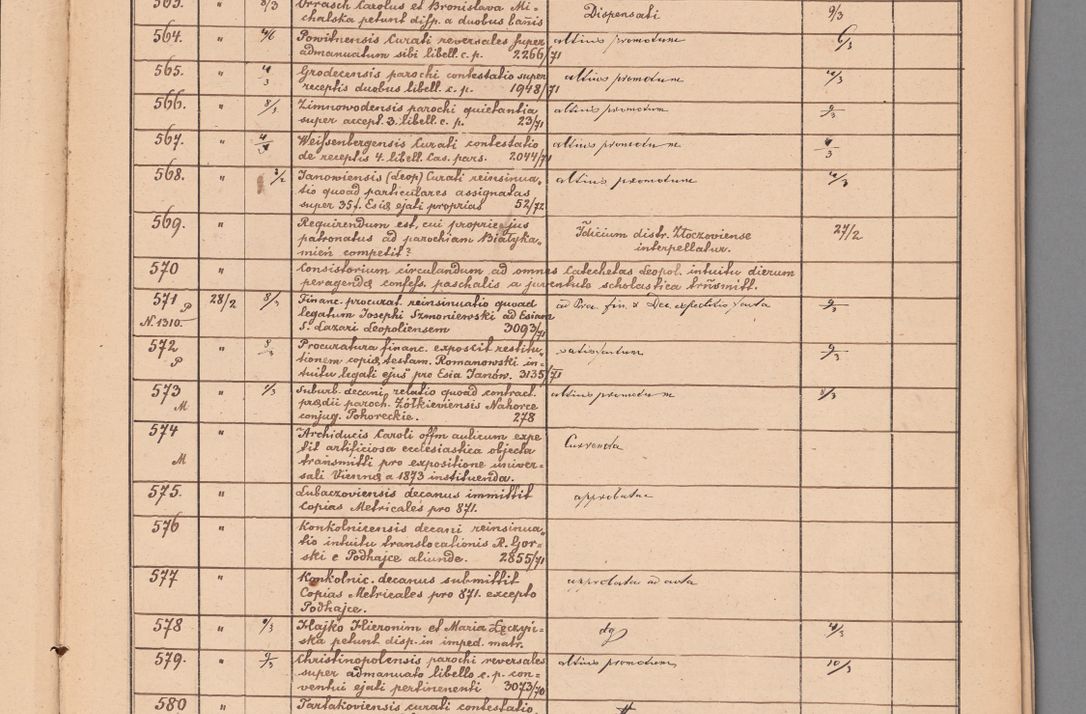 565. " 8/3 Orrasch Carolus et Bronislava Mi=
chalska petunt disp. a duobus bañis Dispensati 9/3
564. " 4/6 Powitnensis Curati reversales super altius promotum 6/3
admanuatum sibi libell. c. p. 2266/71
565. " 4/3 Grodecensis parochi contestatio super altius promotum 4/3
receptis duobus libell. c. p. 1948/71
566. " 8/3 Zimnowodensis parochi quietantia altius promotum 9/3
super accept. 3. libell. c. p. 23/71
567. " 4/3 Weissenbergensis Curati contestatio altius promotum 4/3
de receptis 4. libell. Cas. pars. 2044/71
568. " 3/2 Janowiensis (Leop) Curati reinsinua= altius promotum 4/3
tio quoad particulares assignatas
super 35 f. Esiæ ejati proprias 52/72
569. " Requirendum est, cui proprie jus
patronatus ad parochiam Białyka= Jdicium distr. Złoczoviense 27/2
mień competit? interpellatur.
570 " Consistorium circulandum ad omnes Catechetas Leopol. intuitu dierum
peragendæ confess. paschalis a juventute scholastica trñsmitt.
571 P 28/2 8/3 Financ. procurat. reinsinuatio quoad ad Proc. fin. & Dec. expeditio facta 9/3
N. 1310. legatum Josephi Szmoniewski ad Esiam
S. Lazari Leopoliensem 3093/71
572 " 8/3 Procuratura financ. exposcit restitu= satisfactum 9/3
P tionem copiæ testam. Romanowski in=
tuitu legati ejus pro Esia Janów. 3135/71
573 " 8/3 Suburb. decani relatio quoad contract. altius promotum 8/3
M prædii paroch. Żółkiewiensis Nahorce
conjug. Pohoreckie. 278
574 " Archiducis Caroli offm aulicum expe
tit artificiosa ecclesiastica objecta Currenda
M transmitti pro expositione univer=
sali Viennæ a 1873 instituenda.
575. " Lubaczoviensis decanus immittit approbatae
Copias Metricales pro 871.
576 " Konkolnicensis decani reinsinua=
tio intuitu translocationis R. Gor=
ski e Podhajce aliunde. 2855/71
577 " Konkolnic. decanus submittit approbata ad acta
Copias Metricales pro 871. excepto
Podhajce.
578 " 9/3 Hlajko Hieronim et Maria Łęczyń= dg 4/3
ska petunt disp. in imped. matr.
579. " 9/3 Christinopolensis parochi reversales altius promotum 10/3
super admanuato libello c. p. con=
ventui ejati pertinenenti 3073/70
580 " Tartakoviensis curati contestatio